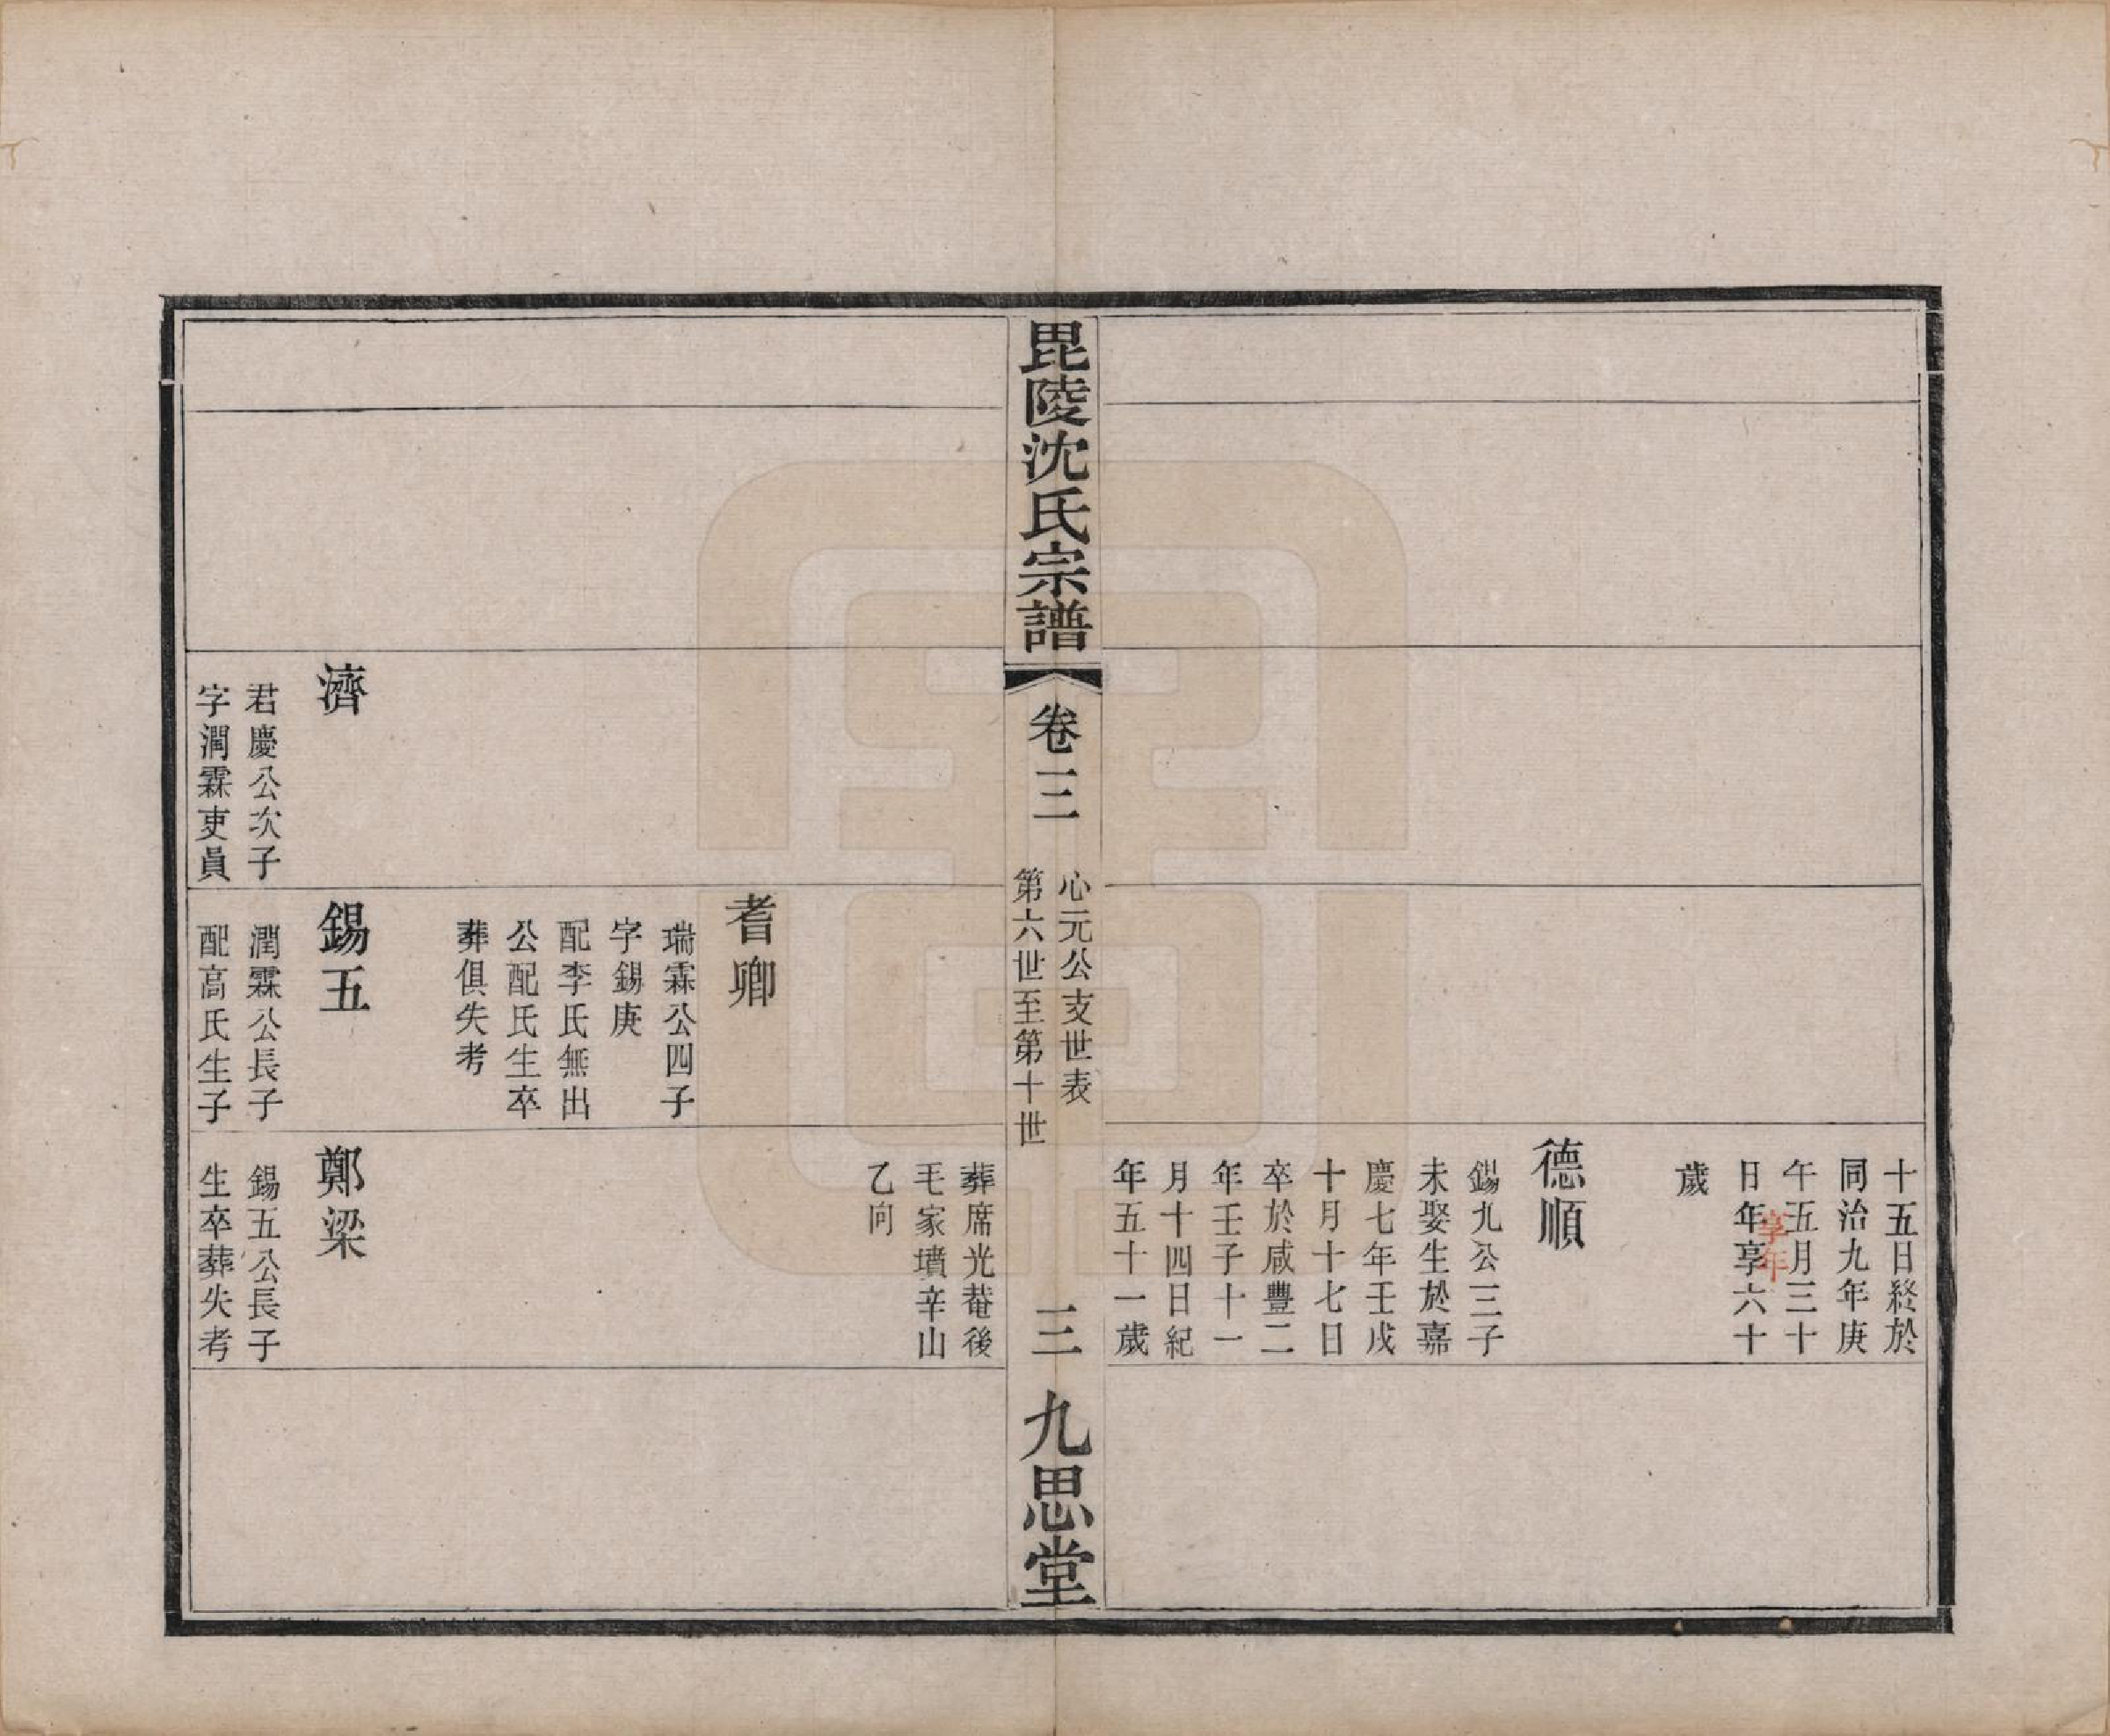 十五日終於
同治九年庚
午五月三十
日年享六十
享年
歲
德順
錫九公三子
未娶生於嘉
慶七年壬戌
十月十七日
卒於咸豐二
年壬子十一
月十四日紀
年五十一歲
毘陵沈氏宗譜
卷三
心元公支世表
第六世至第十世
三
九思堂
葬席光菴後
毛家墳辛山
乙向
耆卿
瑞霖公四子
字錫庚
配李氏無出
公配氏生卒
葬俱失考
濟
君慶公次子
字潤霖吏員
錫五
潤霖公長子
配高氏生子
鄭梁
錫五公長子
生卒葬失考